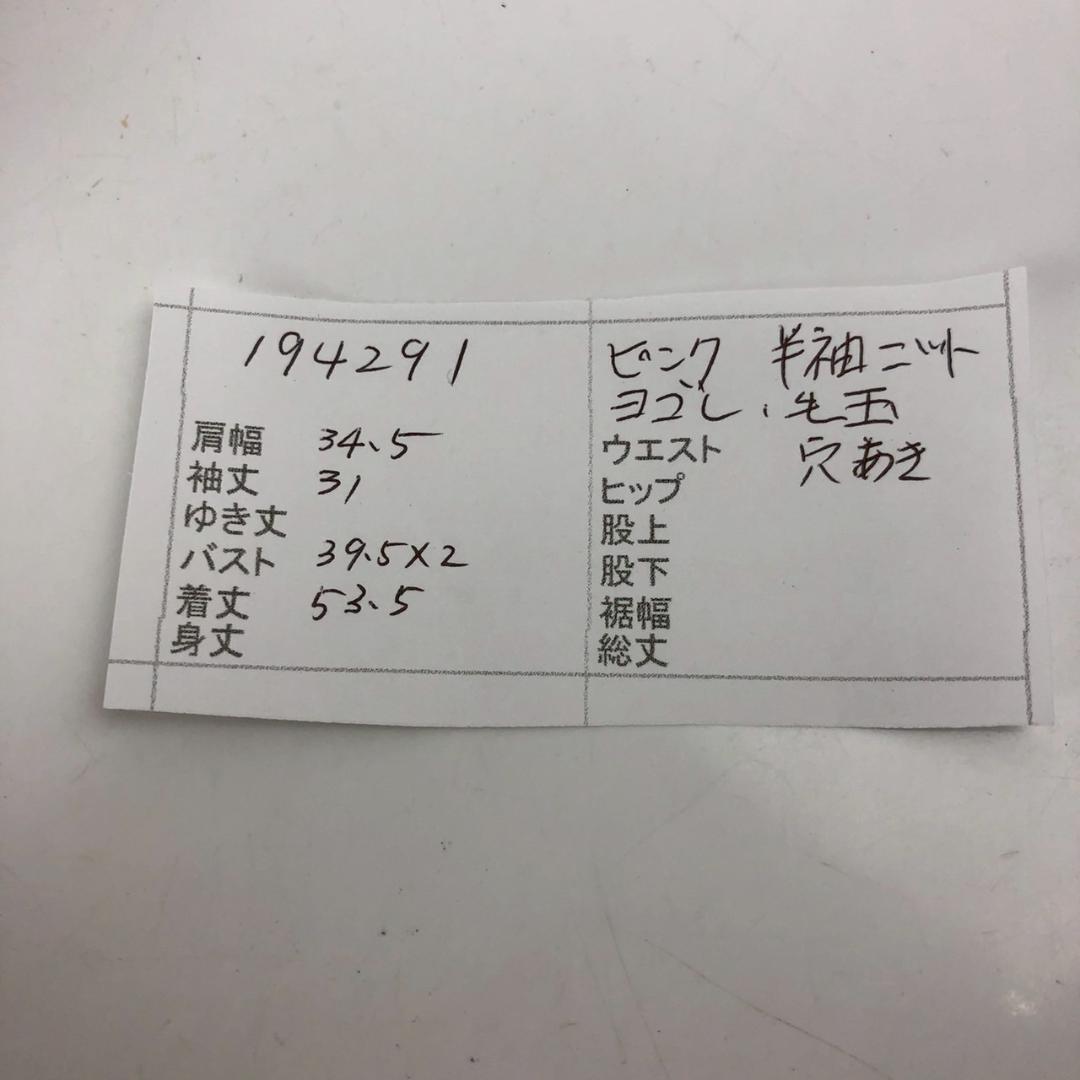 194291
肩幅 34.5
袖丈 31
ゆき丈
バスト 39.5×2
着丈 53.5
身丈
ピンク 半袖ニット
ヨゴレ、毛玉
ウエスト 穴あき
ヒップ
股上
股下
裾幅
総丈